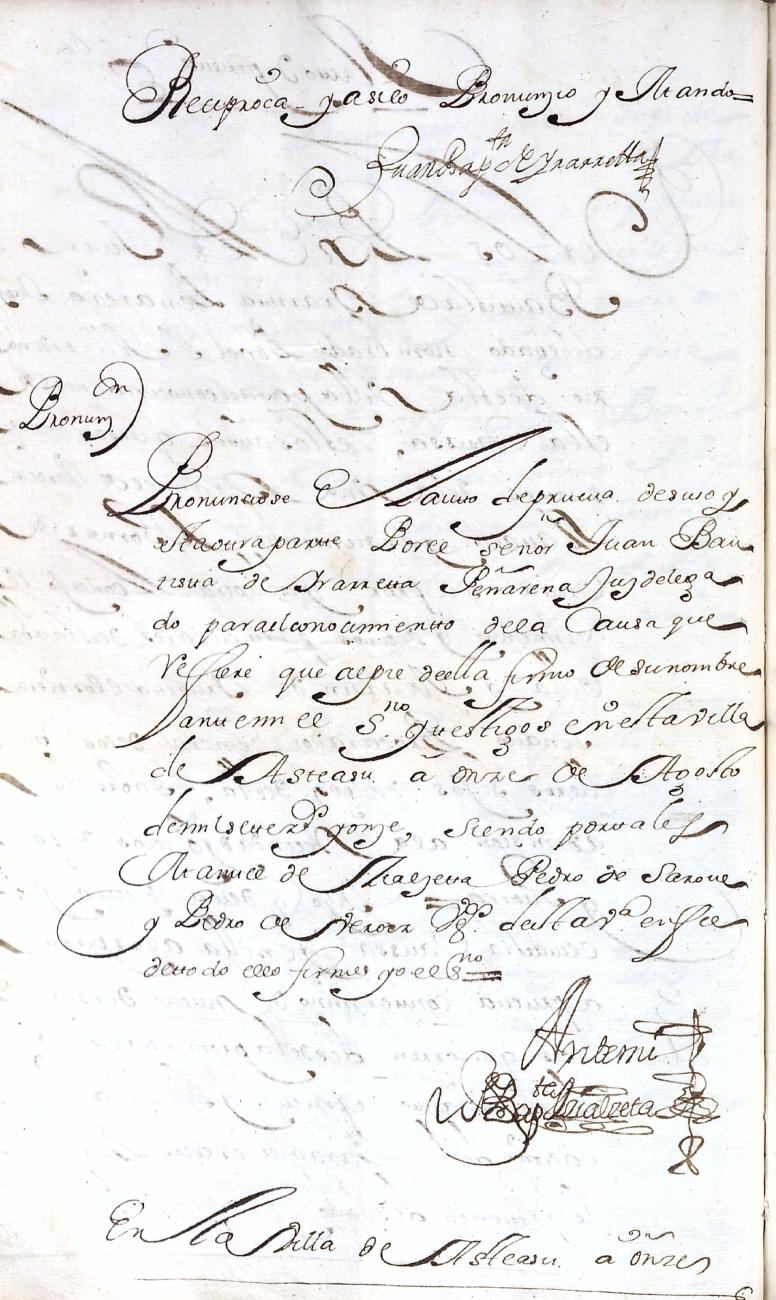 Reciproca y asi lo Pronunzio y Mando=
Juan Bap.tta de Yrarretta
Pronun.on
Pronunciose El auto de prueva de suso y
esta otra parte Por el señor Juan Bau
tista de Yrarreta Peñarena Juez delega
do para el conocimientto de la Causa que
refiere que al pie de ella firmo de su nombre
ante mi el s.no y testigos en esta villa
de Asteasu a onze de Agosto
de mil setez.os y onze, siendo por tales
Manuel de Yrialzetta Pedro de Sarove
y Pedro de V.os desta v.a en fee
de todo ello firme yo el s.no =
Ante mi
Bap.tta de Yrialzeta
En la Villa de Asteasu a onze